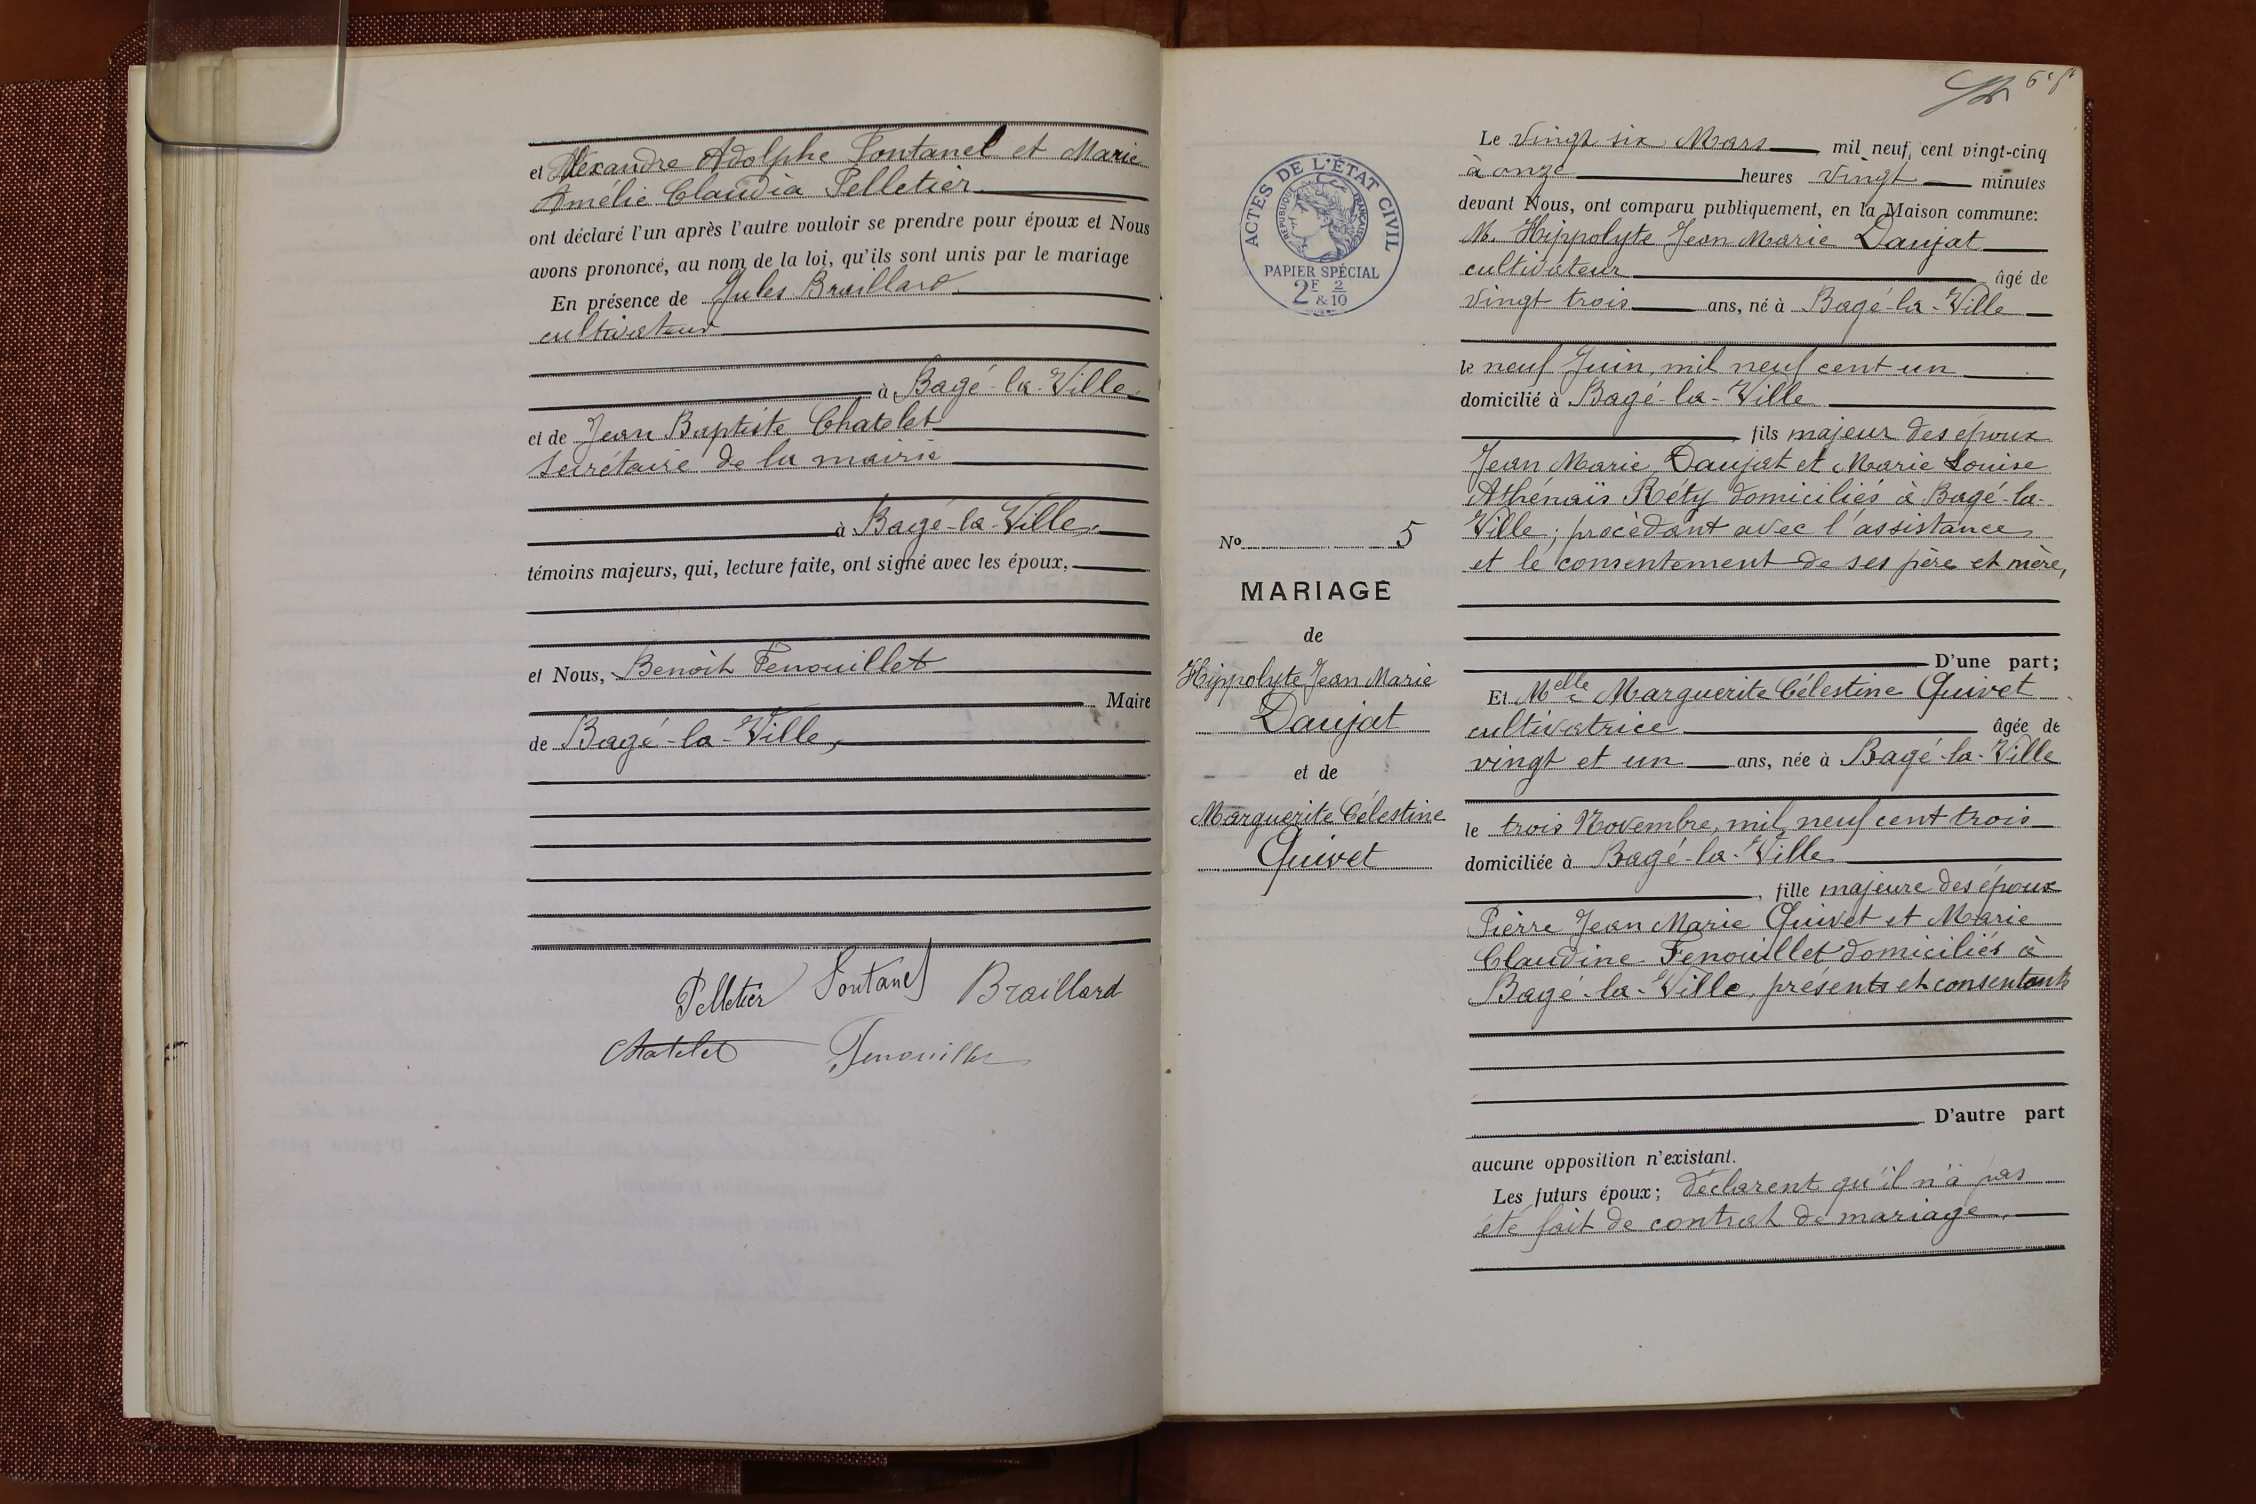 et Alexandre Adolphe Fontanel et Marie
Amélie Claudia Pelletier
ont déclaré l'un après l'autre vouloir se prendre pour époux et Nous
avons prononcé, au nom de la loi, qu'ils sont unis par le mariage
En présence de Jules Braillard
cultivateur
à Bagé-la-Ville
et de Jean Baptiste Chatelet
secrétaire de la mairie
à Bagé-la-Ville
témoins majeurs, qui, lecture faite, ont signé avec les époux,
et Nous, Benoît Fenouillet
Maire
de Bagé-la-Ville,
Pelletier Fontanel Braillard
Chatelet Fenouillet
6e ft
ACTES DE L'ÉTAT CIVIL
RÉPUBLIQUE FRANÇAISE
PAPIER SPÉCIAL
2F 2
& 10
No 5
MARIAGE
de
Hippolyte Jean Marie
Daujat
et de
Marguerite Célestine
Quivet
Le vingt six Mars mil neuf cent vingt-cinq
à onze heures vingt minutes
devant Nous, ont comparu publiquement, en la Maison commune:
M. Hippolyte Jean Marie Daujat
cultivateur âgé de
vingt trois ans, né à Bagé-la-Ville
le neuf Juin, mil neuf cent un
domicilié à Bagé-la-Ville
fils majeur des époux
Jean Marie Daujat et Marie Louise
Athénaïs Réty domiciliés à Bagé-la-
Ville; procédant avec l'assistance
et le consentement de ses père et mère,
D'une part;
Et Melle Marguerite Célestine Quivet
cultivatrice âgée de
vingt et un ans, née à Bagé-la-Ville
le trois Novembre, mil neuf cent trois
domiciliée à Bagé-la-Ville
, fille majeure des époux
Pierre Jean Marie Quivet et Marie
Claudine Fenouillet domiciliés à
Bagé-la-Ville, présents et consentants
D'autre part
aucune opposition n'existant.
Les futurs époux; déclarent qu'il n'a pas
été fait de contrat de mariage.